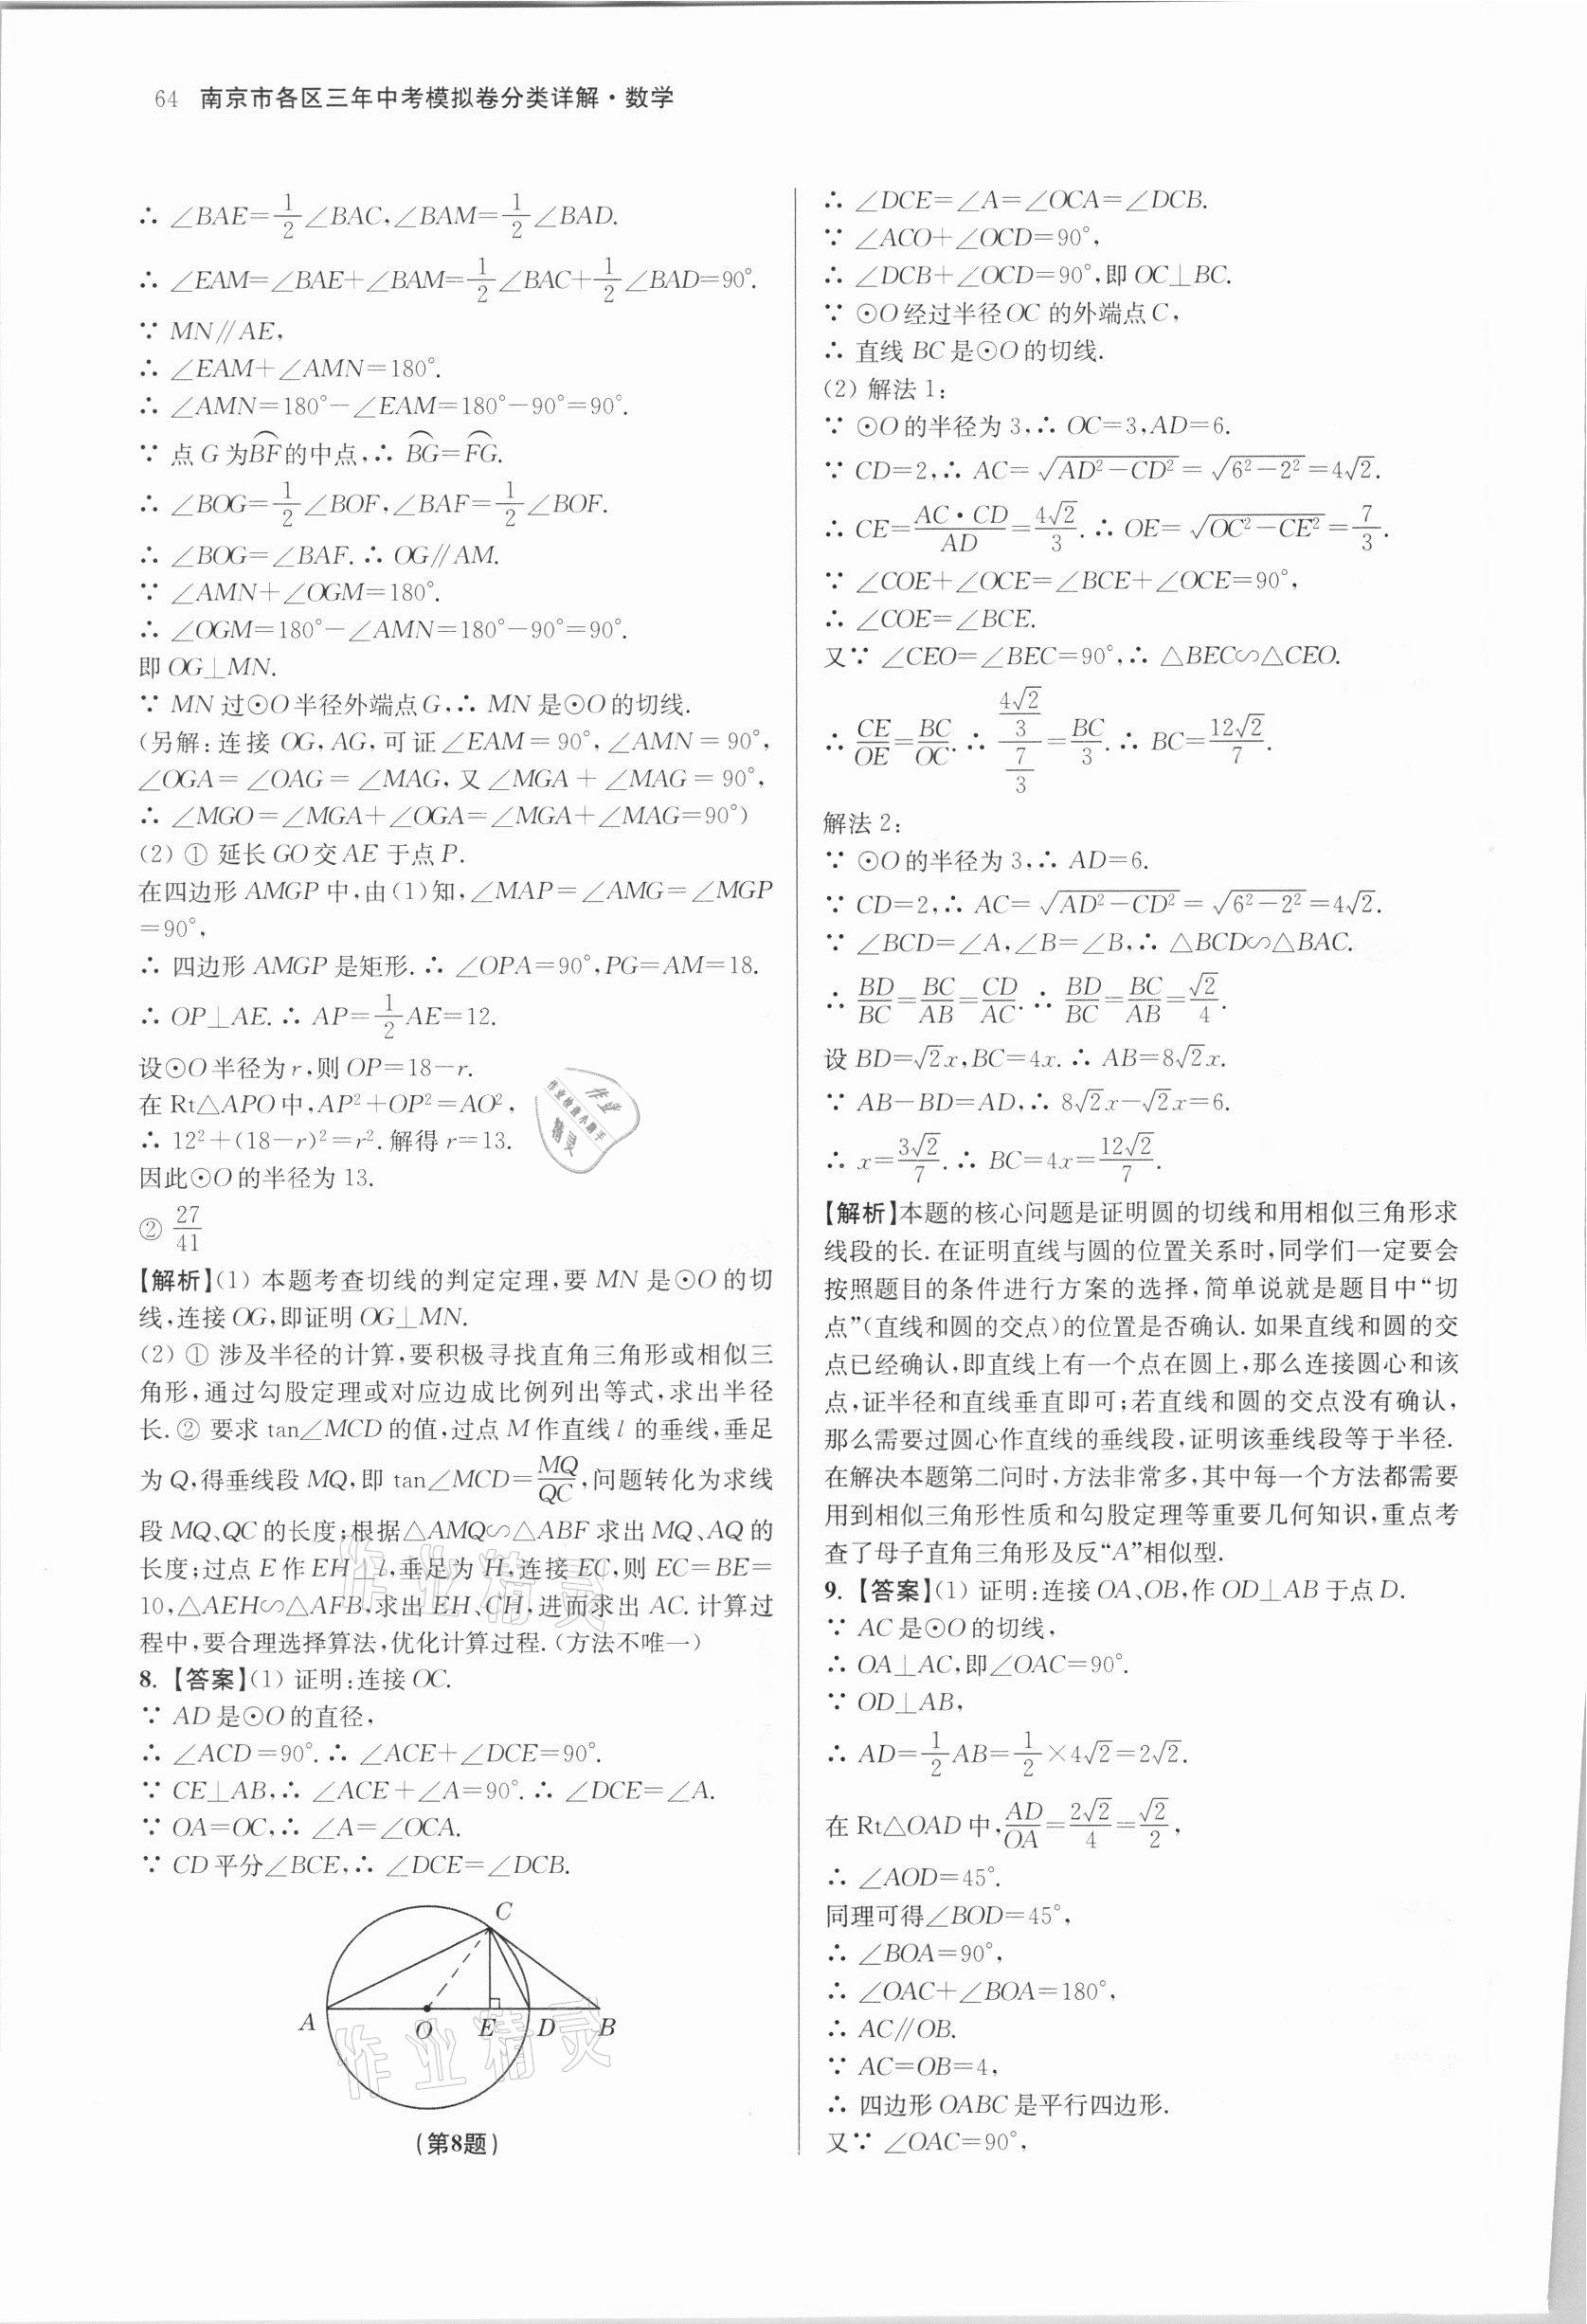 64 南京市各区三年中考模拟卷分类详解·数学
∴ ∠BAE=1/2∠BAC,∠BAM=1/2∠BAD.
∴ ∠EAM=∠BAE+∠BAM=1/2∠BAC+1/2∠BAD=90°.
∵ MN∥AE,
∴ ∠EAM+∠AMN=180°.
∴ ∠AMN=180°-∠EAM=180°-90°=90°.
∵ 点G为B͡F的中点,∴ B͡G=F͡G.
∴ ∠BOG=1/2∠BOF,∠BAF=1/2∠BOF.
∴ ∠BOG=∠BAF.∴ OG∥AM.
∵ ∠AMN+∠OGM=180°.
∴ ∠OGM=180°-∠AMN=180°-90°=90°.
即OG⊥MN.
∵ MN过⊙O半径外端点G,∴ MN是⊙O的切线.
(另解:连接OG,AG,可证∠EAM=90°,∠AMN=90°,
∠OGA=∠OAG=∠MAG,又∠MGA+∠MAG=90°,
∴ ∠MGO=∠MGA+∠OGA=∠MGA+∠MAG=90°)
(2) ① 延长GO交AE于点P.
在四边形AMGP中,由(1)知,∠MAP=∠AMG=∠MGP
=90°,
∴ 四边形AMGP是矩形.∴ ∠OPA=90°,PG=AM=18.
∴ OP⊥AE.∴ AP=1/2AE=12.
设⊙O半径为r,则OP=18-r.
在Rt△APO中,AP²+OP²=AO²,
∴ 12²+(18-r)²=r².解得r=13.
因此⊙O的半径为13.
② 27/41
【解析】(1) 本题考查切线的判定定理,要MN是⊙O的切
线,连接OG,即证明OG⊥MN.
(2) ① 涉及半径的计算,要积极寻找直角三角形或相似三
角形,通过勾股定理或对应边成比例列出等式,求出半径
长.② 要求tan∠MCD的值,过点M作直线l的垂线,垂足
为Q,得垂线段MQ,即tan∠MCD=MQ/QC,问题转化为求线
段MQ、QC的长度;根据△AMQ∽△ABF求出MQ、AQ的
长度;过点E作EH⊥l,垂足为H,连接EC,则EC=BE=
10,△AEH∽△AFB,求出EH、CH,进而求出AC.计算过
程中,要合理选择算法,优化计算过程.(方法不唯一)
8.【答案】(1) 证明:连接OC.
∵ AD是⊙O的直径,
∴ ∠ACD=90°.∴ ∠ACE+∠DCE=90°.
∵ CE⊥AB,∴ ∠ACE+∠A=90°.∴ ∠DCE=∠A.
∵ OA=OC,∴ ∠A=∠OCA.
∵ CD平分∠BCE,∴ ∠DCE=∠DCB.
C
A O E D B
(第8题)
∴ ∠DCE=∠A=∠OCA=∠DCB.
∵ ∠ACO+∠OCD=90°,
∴ ∠DCB+∠OCD=90°,即OC⊥BC.
∵ ⊙O经过半径OC的外端点C,
∴ 直线BC是⊙O的切线.
(2) 解法1:
∵ ⊙O的半径为3,∴ OC=3,AD=6.
∵ CD=2,∴ AC=√(AD²-CD²)=√(6²-2²)=4√2.
∴ CE=AC·CD/AD=4√2/3.∴ OE=√(OC²-CE²)=7/3.
∵ ∠COE+∠OCE=∠BCE+∠OCE=90°,
∴ ∠COE=∠BCE.
又∵ ∠CEO=∠BEC=90°,∴ △BEC∽△CEO.
∴ CE/OE=BC/OC.∴ (4√2/3)/(7/3)=BC/3.∴ BC=12√2/7.
解法2:
∵ ⊙O的半径为3,∴ AD=6.
∵ CD=2,∴ AC=√(AD²-CD²)=√(6²-2²)=4√2.
∵ ∠BCD=∠A,∠B=∠B,∴ △BCD∽△BAC.
∴ BD/BC=BC/AB=CD/AC.∴ BD/BC=BC/AB=√2/4.
设BD=√2x,BC=4x.∴ AB=8√2x.
∵ AB-BD=AD,∴ 8√2x-√2x=6.
∴ x=3√2/7.∴ BC=4x=12√2/7.
【解析】本题的核心问题是证明圆的切线和用相似三角形求
线段的长.在证明直线与圆的位置关系时,同学们一定要会
按照题目的条件进行方案的选择,简单说就是题目中“切
点”(直线和圆的交点)的位置是否确认.如果直线和圆的交
点已经确认,即直线上有一个点在圆上,那么连接圆心和该
点,证半径和直线垂直即可;若直线和圆的交点没有确认,
那么需要过圆心作直线的垂线段,证明该垂线段等于半径.
在解决本题第二问时,方法非常多,其中每一个方法都需要
用到相似三角形性质和勾股定理等重要几何知识,重点考
查了母子直角三角形及反“A”相似型.
9.【答案】(1) 证明:连接OA、OB,作OD⊥AB于点D.
∵ AC是⊙O的切线,
∴ OA⊥AC,即∠OAC=90°.
∵ OD⊥AB,
∴ AD=1/2AB=1/2×4√2=2√2.
在Rt△OAD中,AD/OA=2√2/4=√2/2,
∴ ∠AOD=45°.
同理可得∠BOD=45°,
∴ ∠BOA=90°,
∴ ∠OAC+∠BOA=180°,
∴ AC∥OB.
∵ AC=OB=4,
∴ 四边形OABC是平行四边形.
又∵ ∠OAC=90°,
作业
作业检查小助手
精灵
作业精灵
作业精灵